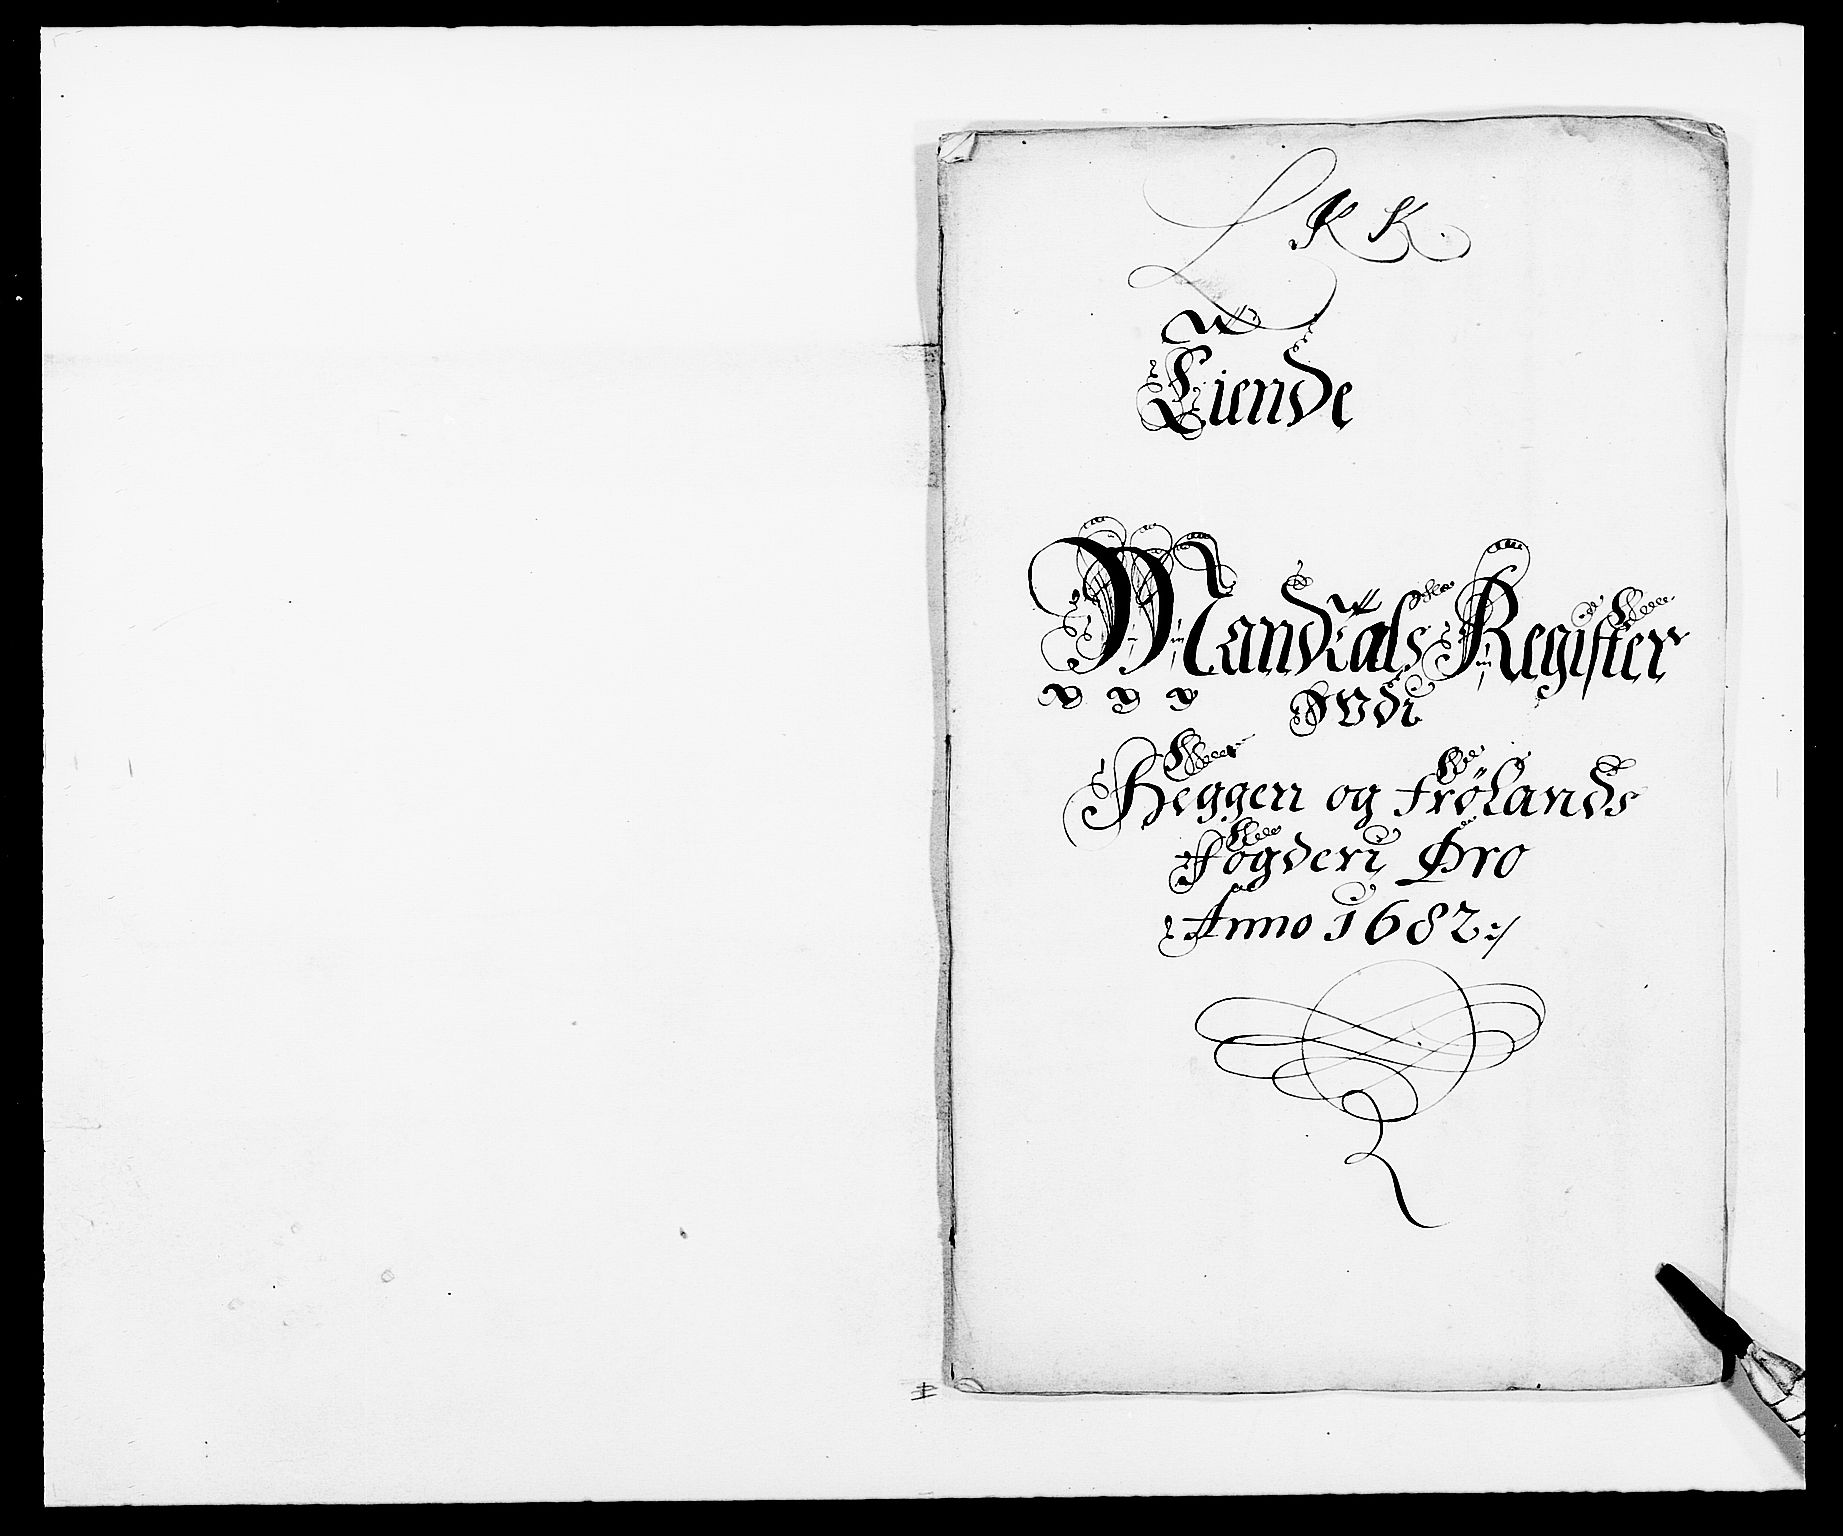 L K K
Tiende
Mandtals Register
Udi
Heggen og Frølands
Fogderi Pro
Anno 1682